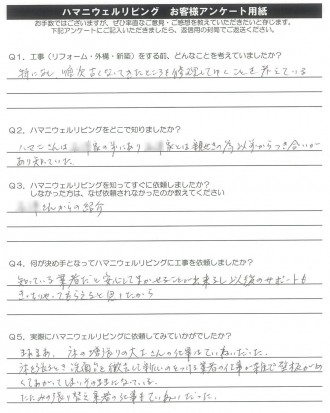 ハマニウェルリビング お客様アンケート用紙
お手数ではございますが、ぜひ率直なご意見・ご感想を教えていただきたいと存じます。
下記アンケートにご記入いただきましたら、返信用の封筒でご返送ください。
Q1．工事（リフォーム・外構・新築）をする前、どんなことを考えていましたか？
特になし 順次古くなってきたところを修理してゆくことを考えている
Q2．ハマニウェルリビングをどこで知りましたか？
ハマニさんは 家の半にあり 家とは親せきの為以前からつき合いが
ありましていた
Q3．ハマニウェルリビングを知ってすぐに依頼しましたか？
しなかった方は、なぜ依頼されなかったのか教えてください
さんからの紹介
Q4．何が決め手となってハマニウェルリビングに工事を依頼しましたか？
知っている業者だと安心してまかせることが出来るし以後のサポートも
きっちりやってもらえると思ったから
Q5．実際にハマニウェルリビングに依頼してみていかがでしたか？
まあまあ、床の張りの大工さんの仕事はていねいだった。
洗面台を撤去して新しいのをつける業者の仕事が雑で
くてあがてしまいそのままになっている
たたみの張り替え業者の仕事もていねいだった